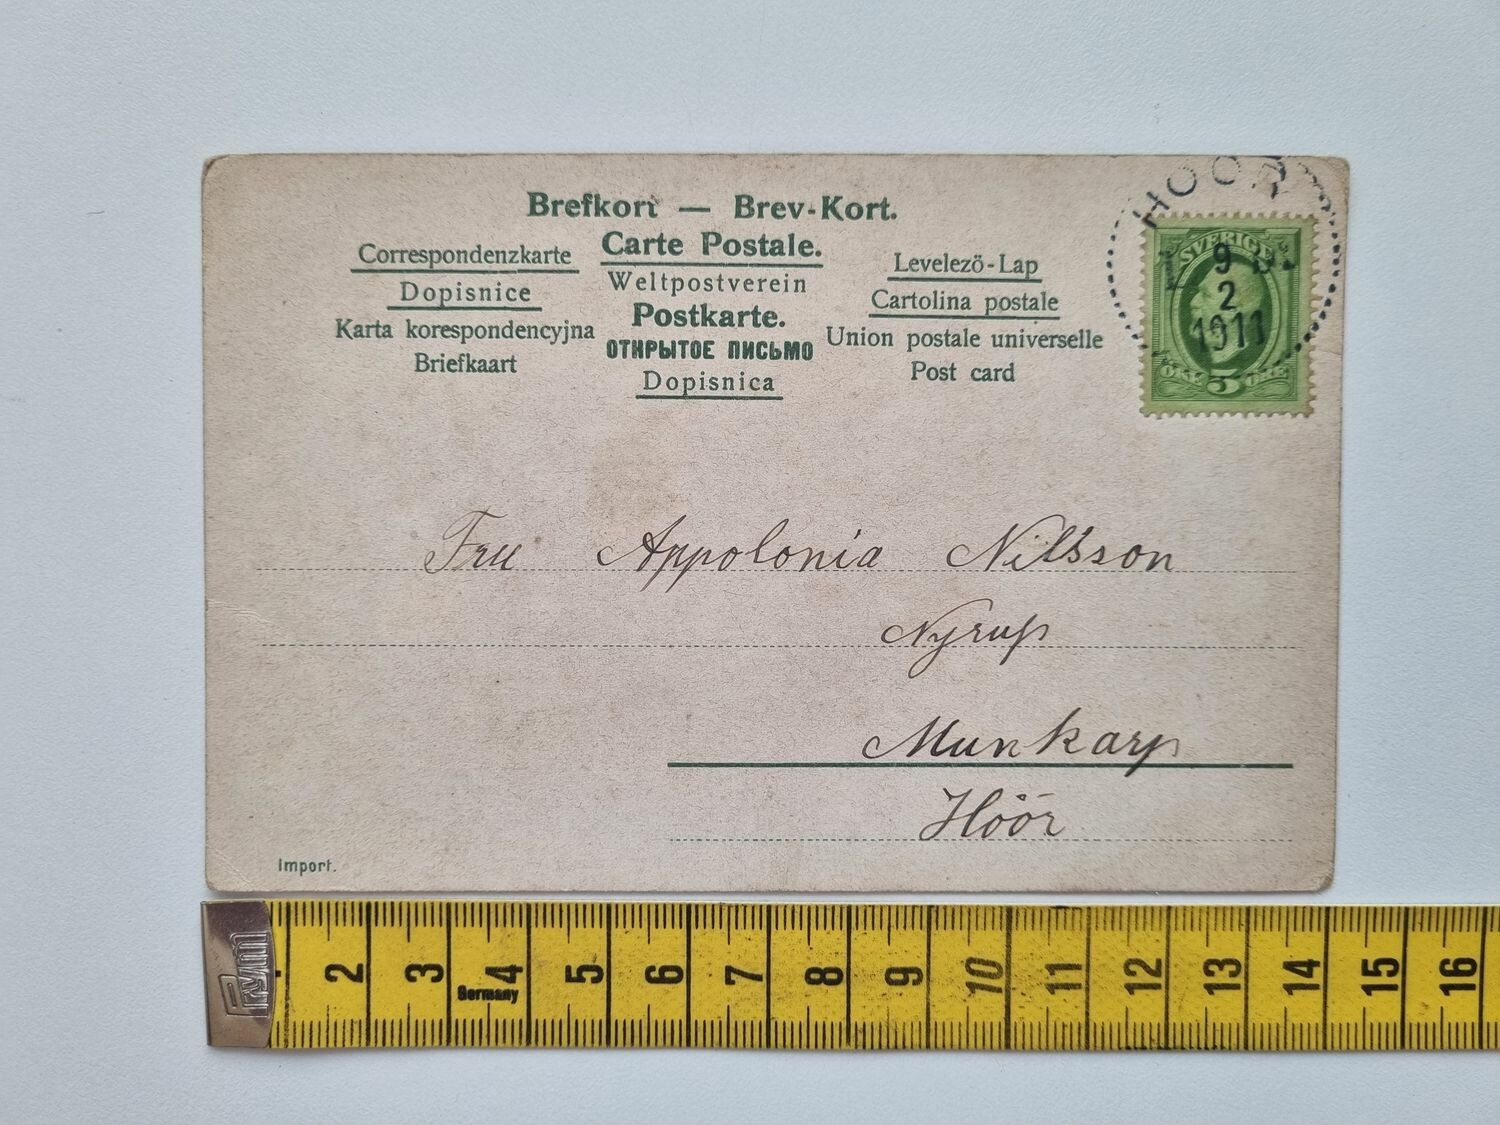 Brefkort — Brev-Kort.
Carte Postale.
Weltpostverein
Postkarte.
ОТКРЫТОЕ ПИСЬМО
Dopisnica
Correspondenzkarte
Dopisnice
Karta korespondencyjna
Briefkaart
Levelezö-Lap
Cartolina postale
Union postale universelle
Post card
HÖÖR
9
2
1911
SVERIGE
5
Fru Appolonia Nilsson
Nyrup
Munkarp
Höör
Import.
Prym
2 3 4 5 6 7 8 9 10 11 12 13 14 15 16
Germany